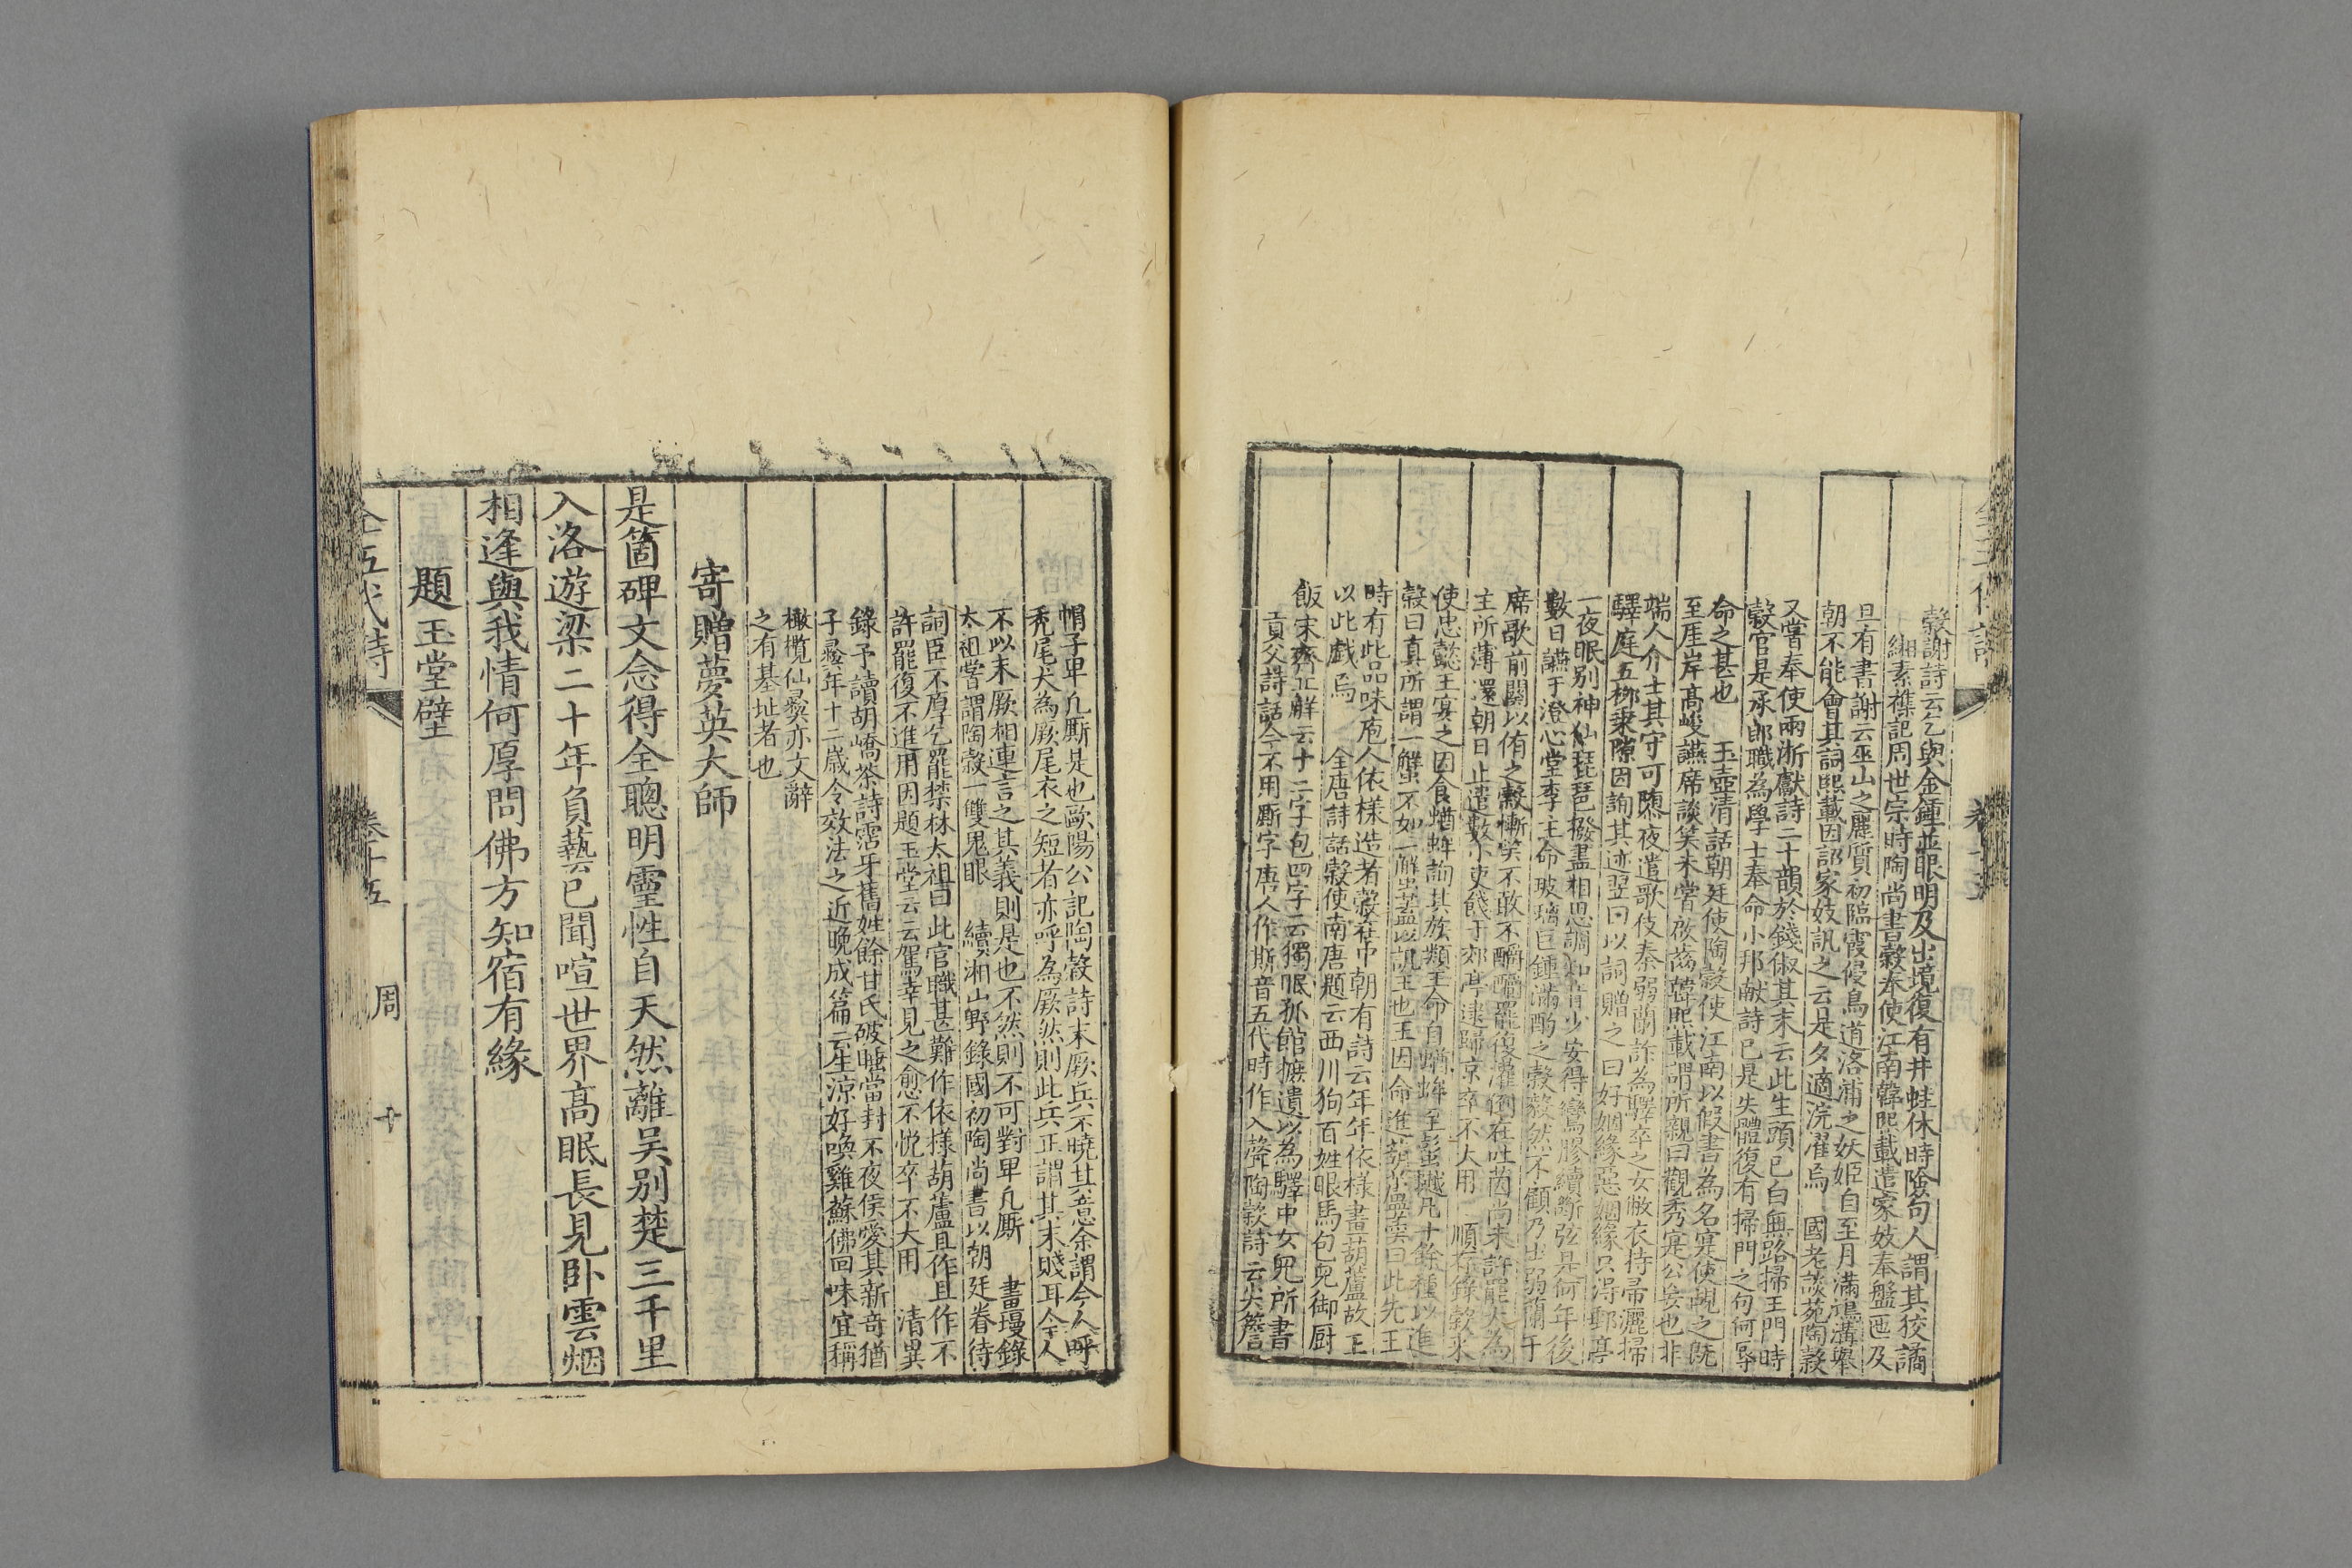 穀謝詩云乞與金鍾並眼明及出境復有井蛙休時險句人謂其狡譎
緗素襍記周世宗時陶尚書穀奉使江南韓熙載遣家妓奉盤匜及
旦有書謝云巫山之麗質初臨霞侵鳥道洛浦之妖姬自至月滿鴻溝舉
朝不能會其詞熙載因召家妓訊之云是夕適浣濯焉 國老談苑陶穀
又嘗奉使兩浙獻詩二十韻於錢俶其末云此生頭已白無路掃王門時
穀官是承郎職為學士奉命小邦献詩已是失體復有掃門之句何辱
命之甚也 玉壺清話朝廷使陶穀使江南以假書為名寔使覘之旣
至厓岸高峻讌席談笑未嘗啟齒韓熙載謂所親曰觀秀寔公妄也非
端人介士其守可隳夜遣歌伎秦弱蘭詐為驛卒之女敝衣持帚灑掃
驛庭五栁乗隙因詢其迹翌日以詞贈之曰好姻緣惡姻緣只得郵亭
一夜眠别神仙琵琶撥盡相思調知音少安得鸞膠續斷弦是何年後
數日讌于澄心堂李主命玻璃巨鍾滿酌之穀毅然不顧乃出弱蘭于
席歌前闋以侑之穀慚笑不敢不釂釂罷復灌倒在吐茵尚未許罷大為
主所薄還朝日止遣數小吏餞于郊亭逮歸京卒不大用
使忠懿王宴之因食蝤蛑詢其族類王命自蝤蛑至蟛蜞凡十餘種以進
穀曰真所謂一蟹不如一蟹
時有此品味庖人依様造者穀在中朝有詩云年年依様畫葫蘆故王
以此戲焉 全唐詩話穀使南唐題云西川狗百姓眼馬包兒御厨
飯宋齊丘觧云十二字包四字云獨眠孤館摭遺以為驛中女兒所書
貢父詩話今不用厮字唐人作斯音五代時作入聲陶穀詩云尖簷
帽子卑凡厮是也歐陽公記陶穀詩末厥兵不曉其意余謂今人呼
秃尾犬為厥尾衣之短者亦呼為厥然則此兵正謂其末賤耳今人
不以末厥相連言之其義則是也不然則不可對卑凡厮 畫墁錄
太祖嘗謂陶穀一雙鬼眼 續湘山野錄國初陶尚書以朝廷眷待
詞臣不厚乞罷禁林太祖曰此官職甚難作依様葫蘆且作且作不
許罷復不進用因題玉堂云云駕幸見之愈不悅卒不大用 清異
錄予讀胡嶠茶詩霑牙舊姓餘甘氏破睡當封不夜侯愛其新竒猶
子彞年十二歲令效法之近晚成篇云生凉好喚雞蘇佛回味宜稱
橄欖仙彞亦文辭
之有基址者也
寄贈夢英大師
是箇碑文念得全聰明靈性自天然離吴别楚三千里
入洛遊梁二十年負藝已聞喧世界高眠長見卧雲烟
相逢與我情何厚問佛方知宿有緣
題玉堂壁
全五代詩 卷十五 周 十